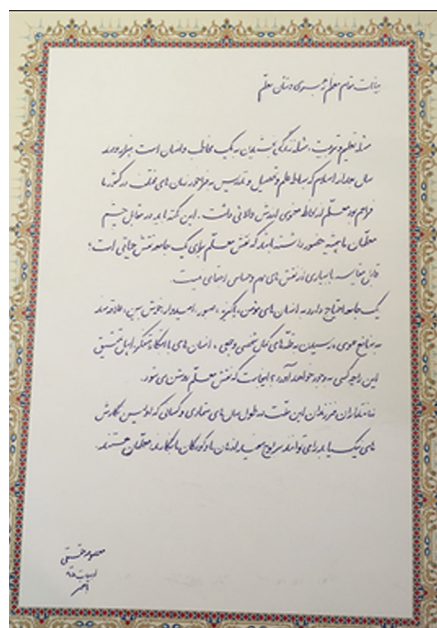 بیانات مقام معظم رهبری در شأن معلم
مسئله تعلیم و تربیت، مسئله زندگی بخشیدن به یک مخاطب و انسان است
سال بعد از اسلام که بساط علم و تحصیل و تدریس به مرور زمان های مختلف در کشور ما
فراهم بود معلم از لحاظ معنوی ارزش والائی داشت. این نکته باید در مقابل چشم
معلمان ما همیشه حضور داشته باشد که نقش معلم برای یک جامعه نقش حیاتی است؛
قابل مقایسه با بسیاری از نقش های مهم و حساس اجتماعی نیست.
یک جامعه احتیاج دارد به انسان های مؤمن، باانگیزه، صبور، امیدوار، خوش بین، علاقه مند
به منافع عمومی، رسیدن به قله های کمال شخصی و جمعی، انسان های با ابتکار، متفکر، اهل تحقیق
این را چه کسی به وجود خواهد آورد؟ اینجاست که نقش معلم روشن می شود.
فرزندان این ملت در طول سال های متمادی و کسانی که اولین نگارش
های نیک یا بد را می توانند بر لوح سفید اذهان ما و کودکان ما بنگارند، معلمان هستند.